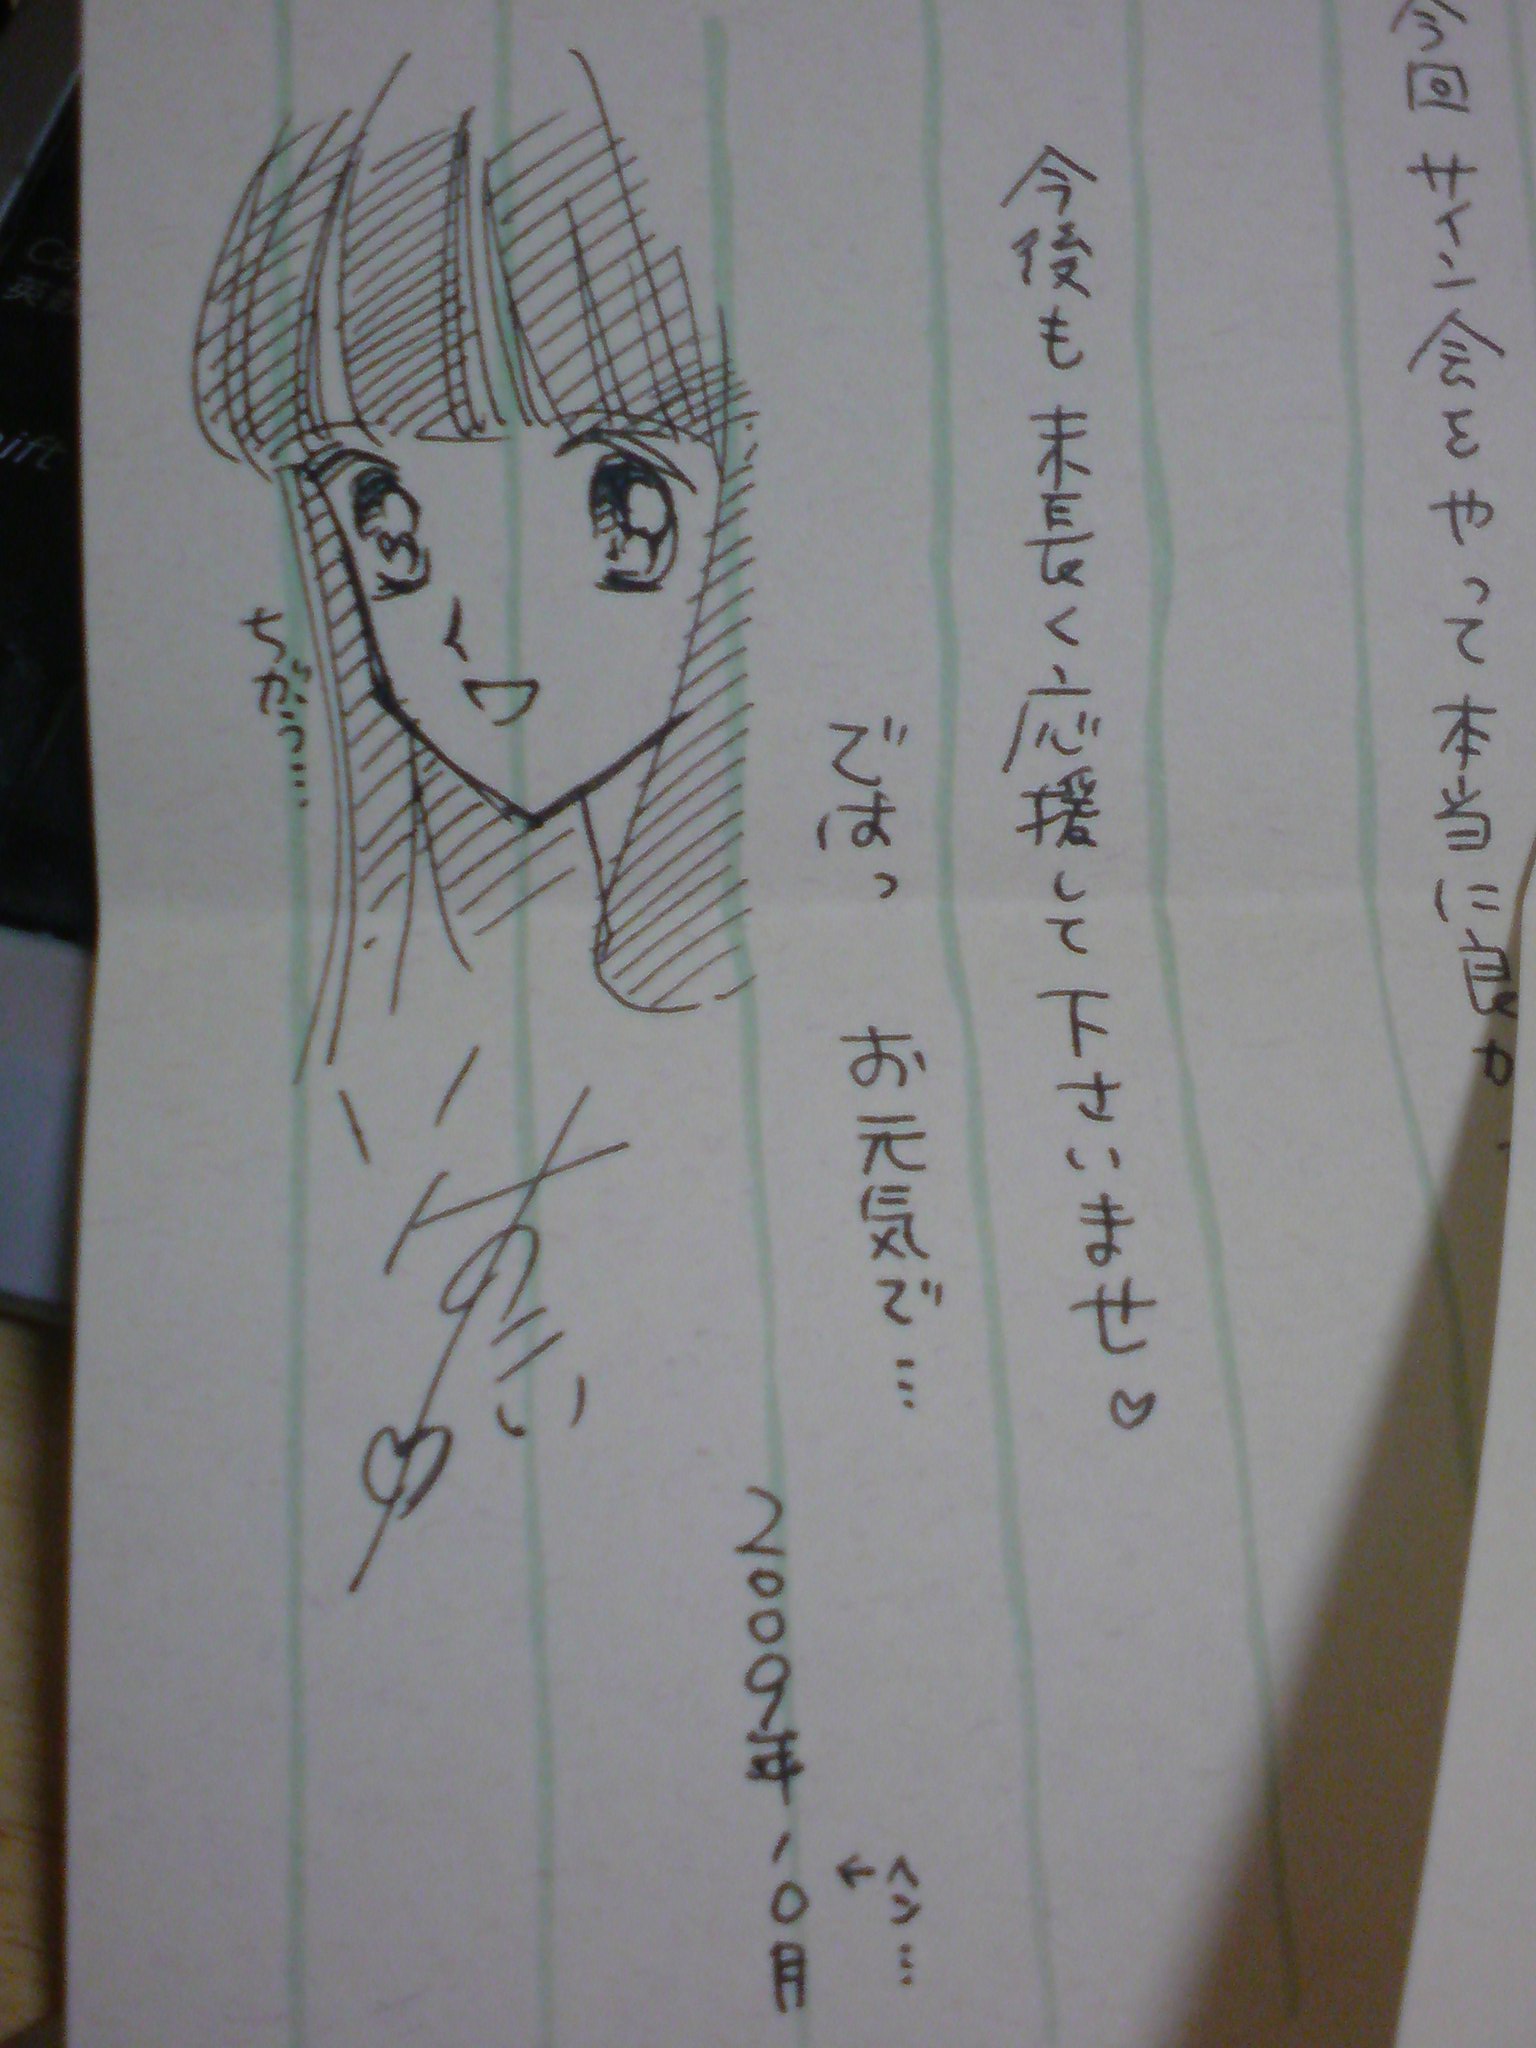 今回サイン会をやって本当に良か
今後も末長く応援して下さいませ♡
ではっ お元気で…
ヘン…
←
2009年10月
ちがっ…